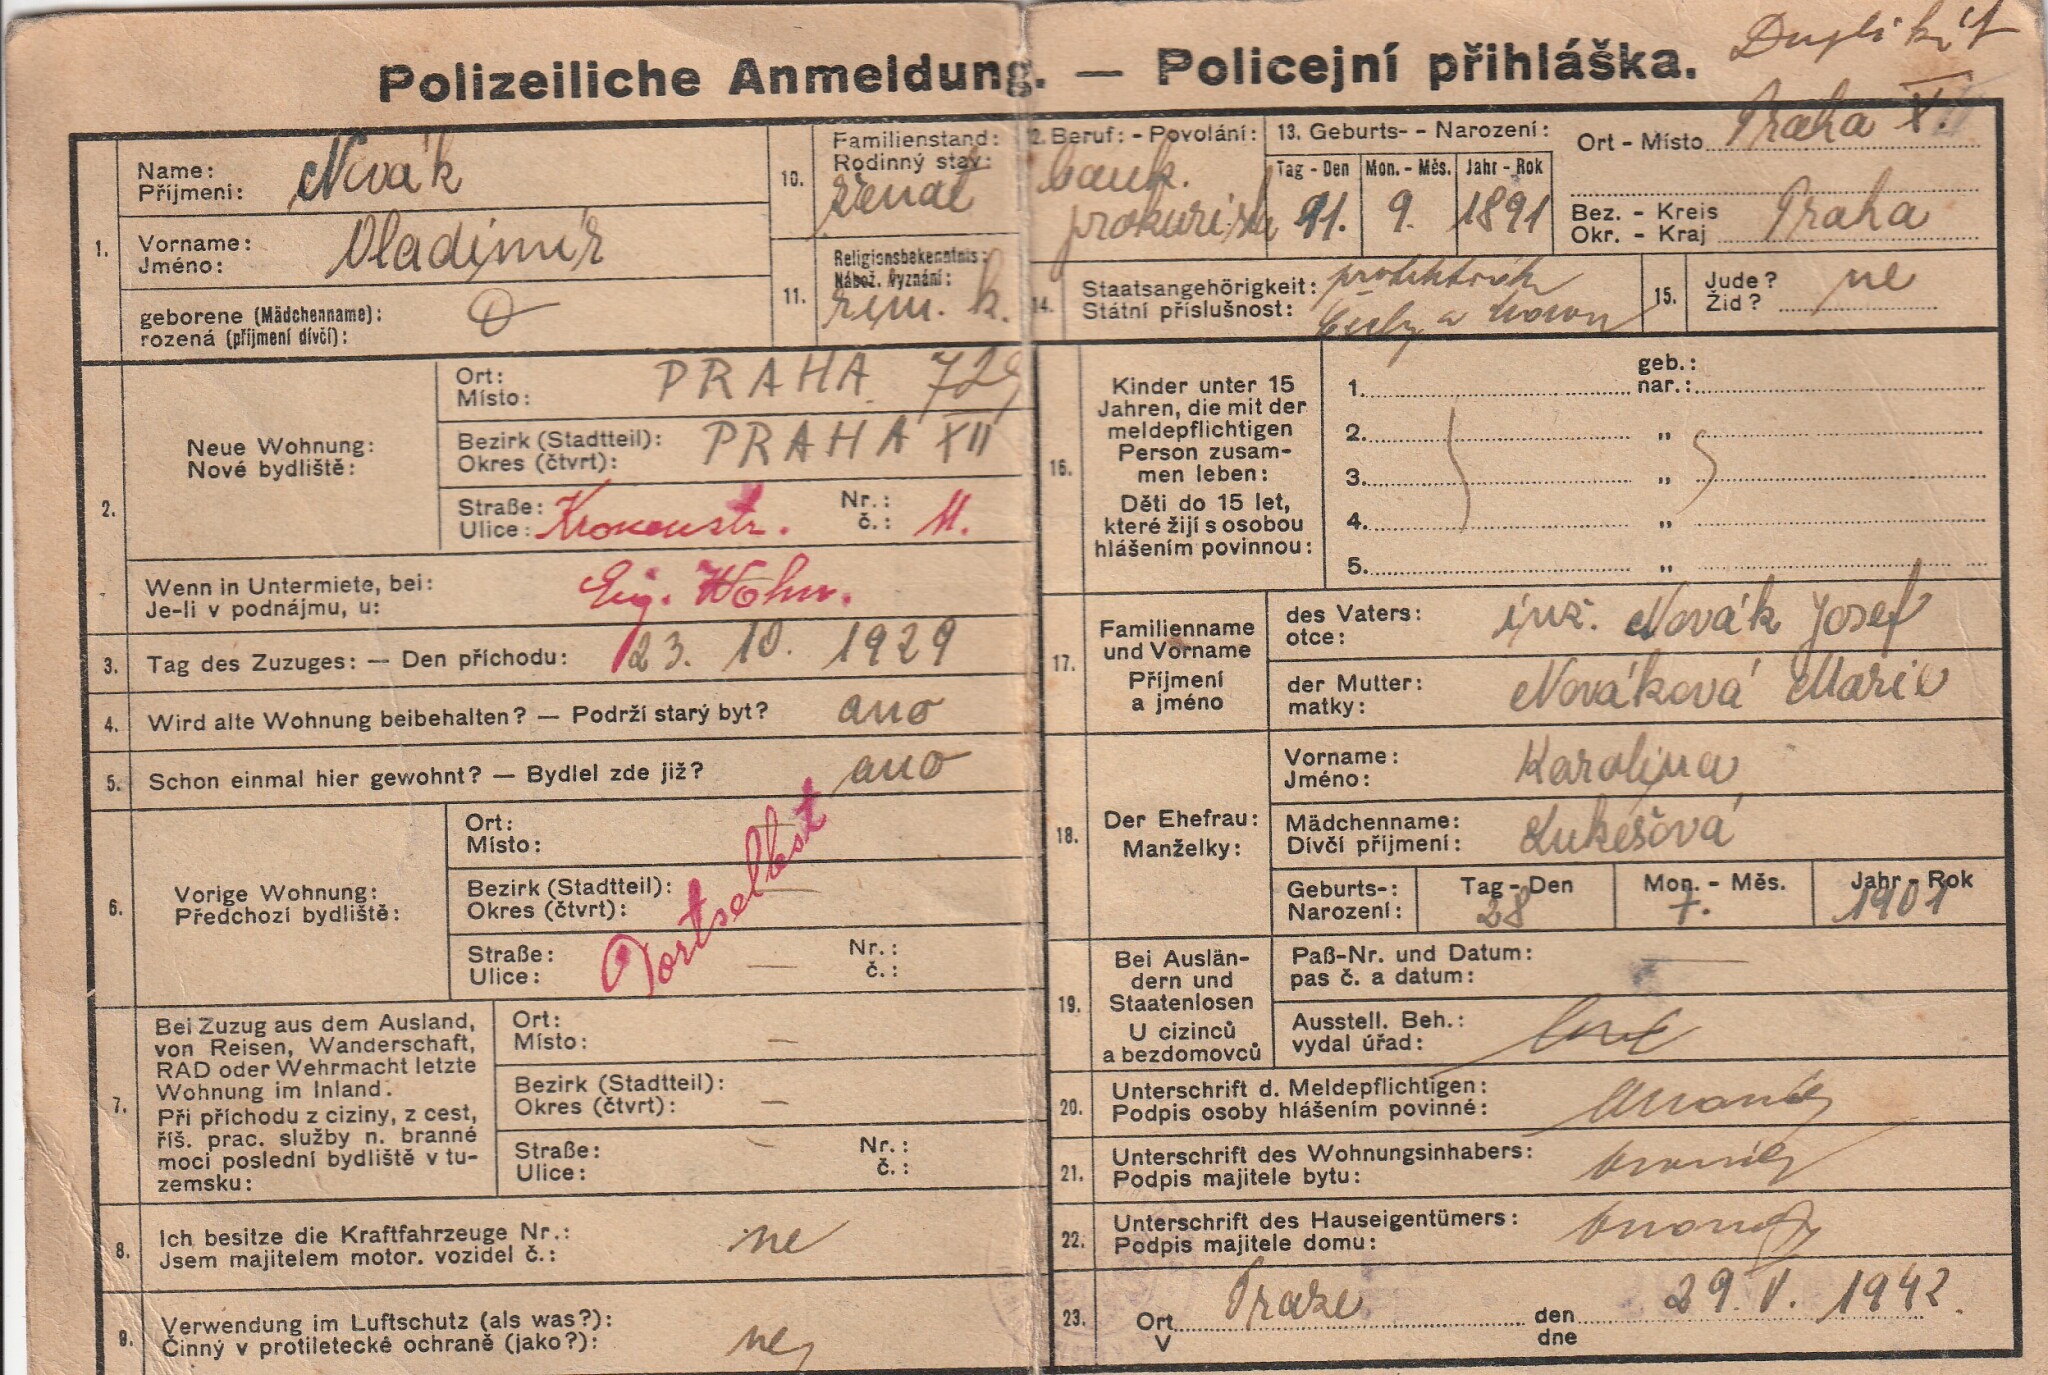 Duplikát
Polizeiliche Anmeldung. — Policejní přihláška.
1.
Name:
Příjmení: Novák
Vorname:
Jméno: Vladimír
geborene (Mädchenname):
rozená (příjmení dívčí):
10. Familienstand:
Rodinný stav:
ženat
11. Religionsbekenntnis:
Nábož. vyznání:
řím. k.
2. Beruf: - Povolání:
bank.
prokurista
13. Geburts- - Narození:
Tag - Den Mon. - Měs. Jahr - Rok
11. 9. 1891
Ort - Místo Praha
Bez. - Kreis
Okr. - Kraj Praha
14. Staatsangehörigkeit:
Státní příslušnost:
protektorát
Čechy a Morava
15. Jude?
Žid? ne
2. Neue Wohnung:
Nové bydliště:
Ort:
Místo: PRAHA
Bezirk (Stadtteil):
Okres (čtvrt): PRAHA XII
Straße:
Ulice: Krokusstr.
Nr.:
č.: 11.
Wenn in Untermiete, bei:
Je-li v podnájmu, u: Eig. Wohn.
3. Tag des Zuzuges: — Den příchodu: 23. 10. 1929
4. Wird alte Wohnung beibehalten? — Podrží starý byt? ano
5. Schon einmal hier gewohnt? — Bydlel zde již? ano
6. Vorige Wohnung:
Předchozí bydliště:
Ort:
Místo: —
Bezirk (Stadtteil):
Okres (čtvrt): —
Straße:
Ulice: —
Nr.:
č.:
Dortselbst
7. Bei Zuzug aus dem Ausland,
von Reisen, Wanderschaft,
RAD oder Wehrmacht letzte
Wohnung im Inland.
Při příchodu z ciziny, z cest,
říš. prac. služby n. branné
moci poslední bydliště v tu-
zemsku:
Ort:
Místo: —
Bezirk (Stadtteil):
Okres (čtvrt): —
Straße:
Ulice: —
Nr.:
č.:
8. Ich besitze die Kraftfahrzeuge Nr.:
Jsem majitelem motor. vozidel č.: ne
9. Verwendung im Luftschutz (als was?):
Činný v protiletecké ochraně (jako?): ne
16. Kinder unter 15
Jahren, die mit der
meldepflichtigen
Person zusam-
men leben:
Děti do 15 let,
které žijí s osobou
hlášením povinnou:
geb.:
1. nar.:
2. "
3. "
4. "
5. "
17. Familienname
und Vorname
Příjmení
a jméno
des Vaters:
otce: inž. Novák Josef
der Mutter:
matky: Nováková Marie
18. Der Ehefrau:
Manželky:
Vorname:
Jméno: Karolina
Mädchenname:
Dívčí příjmení: Lukešová
Geburts-:
Narození:
Tag - Den Mon. - Měs. Jahr - Rok
28 7. 1901
19. Bei Auslän-
dern und
Staatenlosen
U cizinců
a bezdomovců
Paß-Nr. und Datum:
pas č. a datum: —
Ausstell. Beh.:
vydal úřad:
20. Unterschrift d. Meldepflichtigen:
Podpis osoby hlášením povinné:
21. Unterschrift des Wohnungsinhabers:
Podpis majitele bytu:
22. Unterschrift des Hauseigentümers:
Podpis majitele domu:
23. Ort
V Praze
den
dne 29. V. 1942.